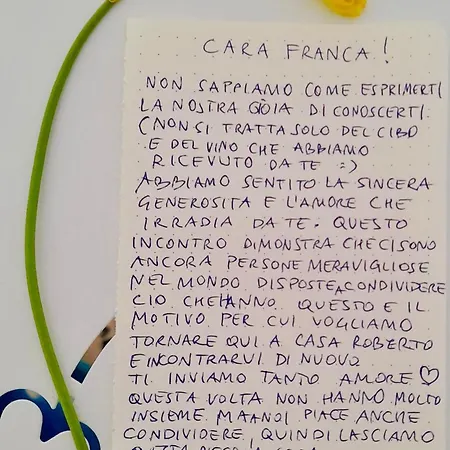 CARA FRANCA!
NON SAPPIAMO COME ESPRIMERTI
LA NOSTRA GIOIA DI CONOSCERTI.
(NON SI TRATTA SOLO DEL CIBO
E DEL VINO CHE ABBIAMO
RICEVUTO DA TE :)
ABBIAMO SENTITO LA SINCERA
GENEROSITA E L'AMORE CHE
IRRADIA DA TE. QUESTO
INCONTRO DIMONSTRA CHE CI SONO
ANCORA PERSONE MERAVIGLIOSE
NEL MONDO DISPOSTE A CONDIVIDERE
CIO CHE HANNO. QUESTO E IL
MOTIVO PER CUI VOGLIAMO
TORNARE QUI A CASA ROBERTO
E INCONTRARVI DI NUOVO
TI INVIAMO TANTO AMORE ♡
QUESTA VOLTA NON HANNO MOLTO
INSIEME. MA A NOI PIACE ANCHE
CONDIVIDERE, QUINDI LASCIAMO